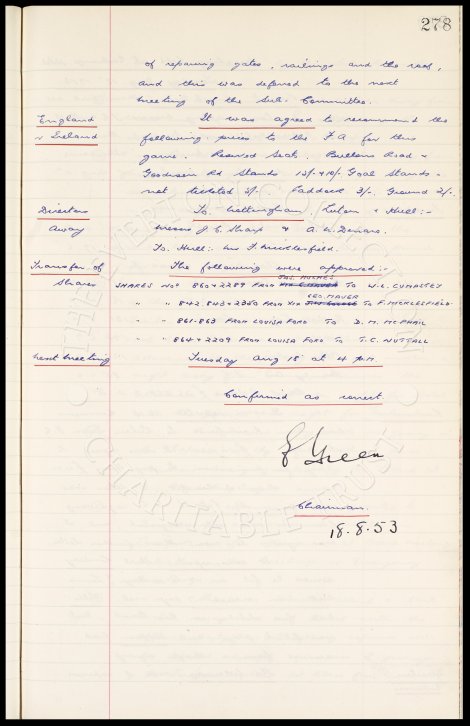 278
of repairing gates, railings and the roof,
and this was deferred to the next
meeting of the Sub. Committee.
England It was agreed to recommend the
v Ireland following prices to the F A for this
game. Reserved Seats. Bullens Road &
Goodison Rd Stands 15/- & 10/- Goal Stands -
not ticketed 5/- Paddock 3/- Ground 2/-
Directors To Nottingham, Luton & Hull:-
Away Messrs J. C. Sharp & A. W. Denaro.
To Hull:- Mr F. Micklesfield.
Transfer of The following were approved:-
Shares JAS. HUGHES
SHARES Nos 860 & 2289 FROM TO W. L. CUMATEY
GEO. MAVER
" " 842. 843 & 2350 FROM TO F. MICKLESFIELD.
" " 861-863 FROM LOUISA FORD TO D. M. MCPHAIL
" " 864 & 2209 FROM LOUISA FORD TO T. C. NUTTALL
Next Meeting Tuesday Aug 18 at 4 P.M.
Confirmed as correct
E Green
Chairman
18.8.53
THE EVERTON COLLECTION
CHARITABLE TRUST